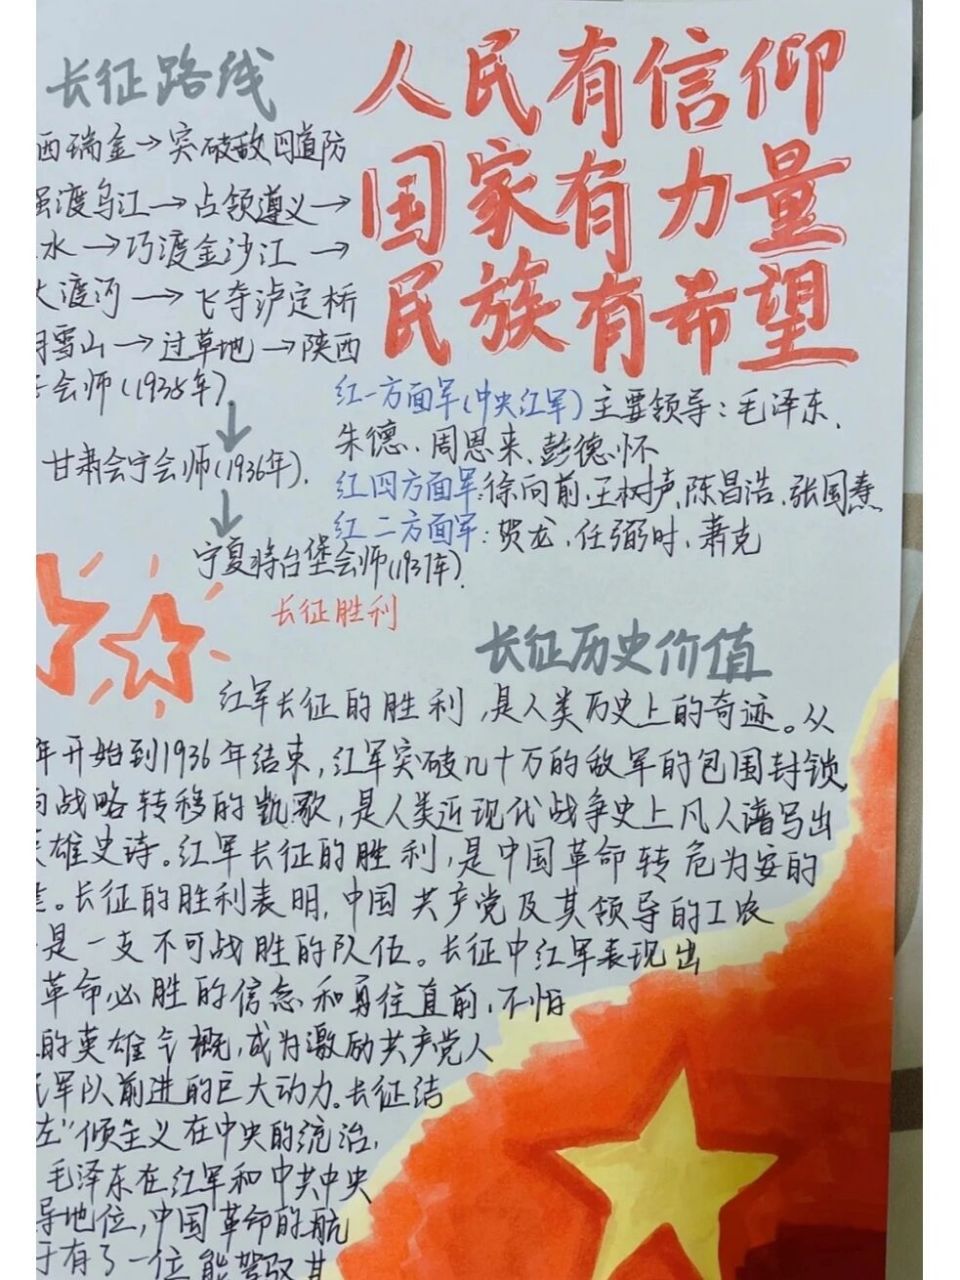 人民有信仰
国家有力量
民族有希望
长征路线
西瑞金→突破敌四道防
强渡乌江→占领遵义→
水→巧渡金沙江→
大渡河→飞夺泸定桥
雪山→过草地→陕西
会师(1935年)
甘肃会宁会师(1936年).
宁夏将台堡会师(1937年).
长征胜利
红一方面军(中央红军)主要领导:毛泽东、
朱德、周恩来、彭德怀
红四方面军:徐向前、王树声、陈昌浩、张国焘
红二方面军:贺龙、任弼时、萧克
长征历史价值
红军长征的胜利,是人类历史上的奇迹。从
年开始到1936年结束,红军突破几十万的敌军的包围封锁,
战略转移的凯歌,是人类近现代战争史上凡人谱写出
英雄史诗。红军长征的胜利,是中国革命转危为安的
。长征的胜利表明,中国共产党及其领导的工农
是一支不可战胜的队伍。长征中红军表现出
革命必胜的信念和勇往直前,不怕
的英雄气概,成为激励共产党人
民军队前进的巨大动力。长征结
左"倾主义在中央的统治,
毛泽东在红军和中共中央
导地位,中国革命的航
于有了一位能驾驭其